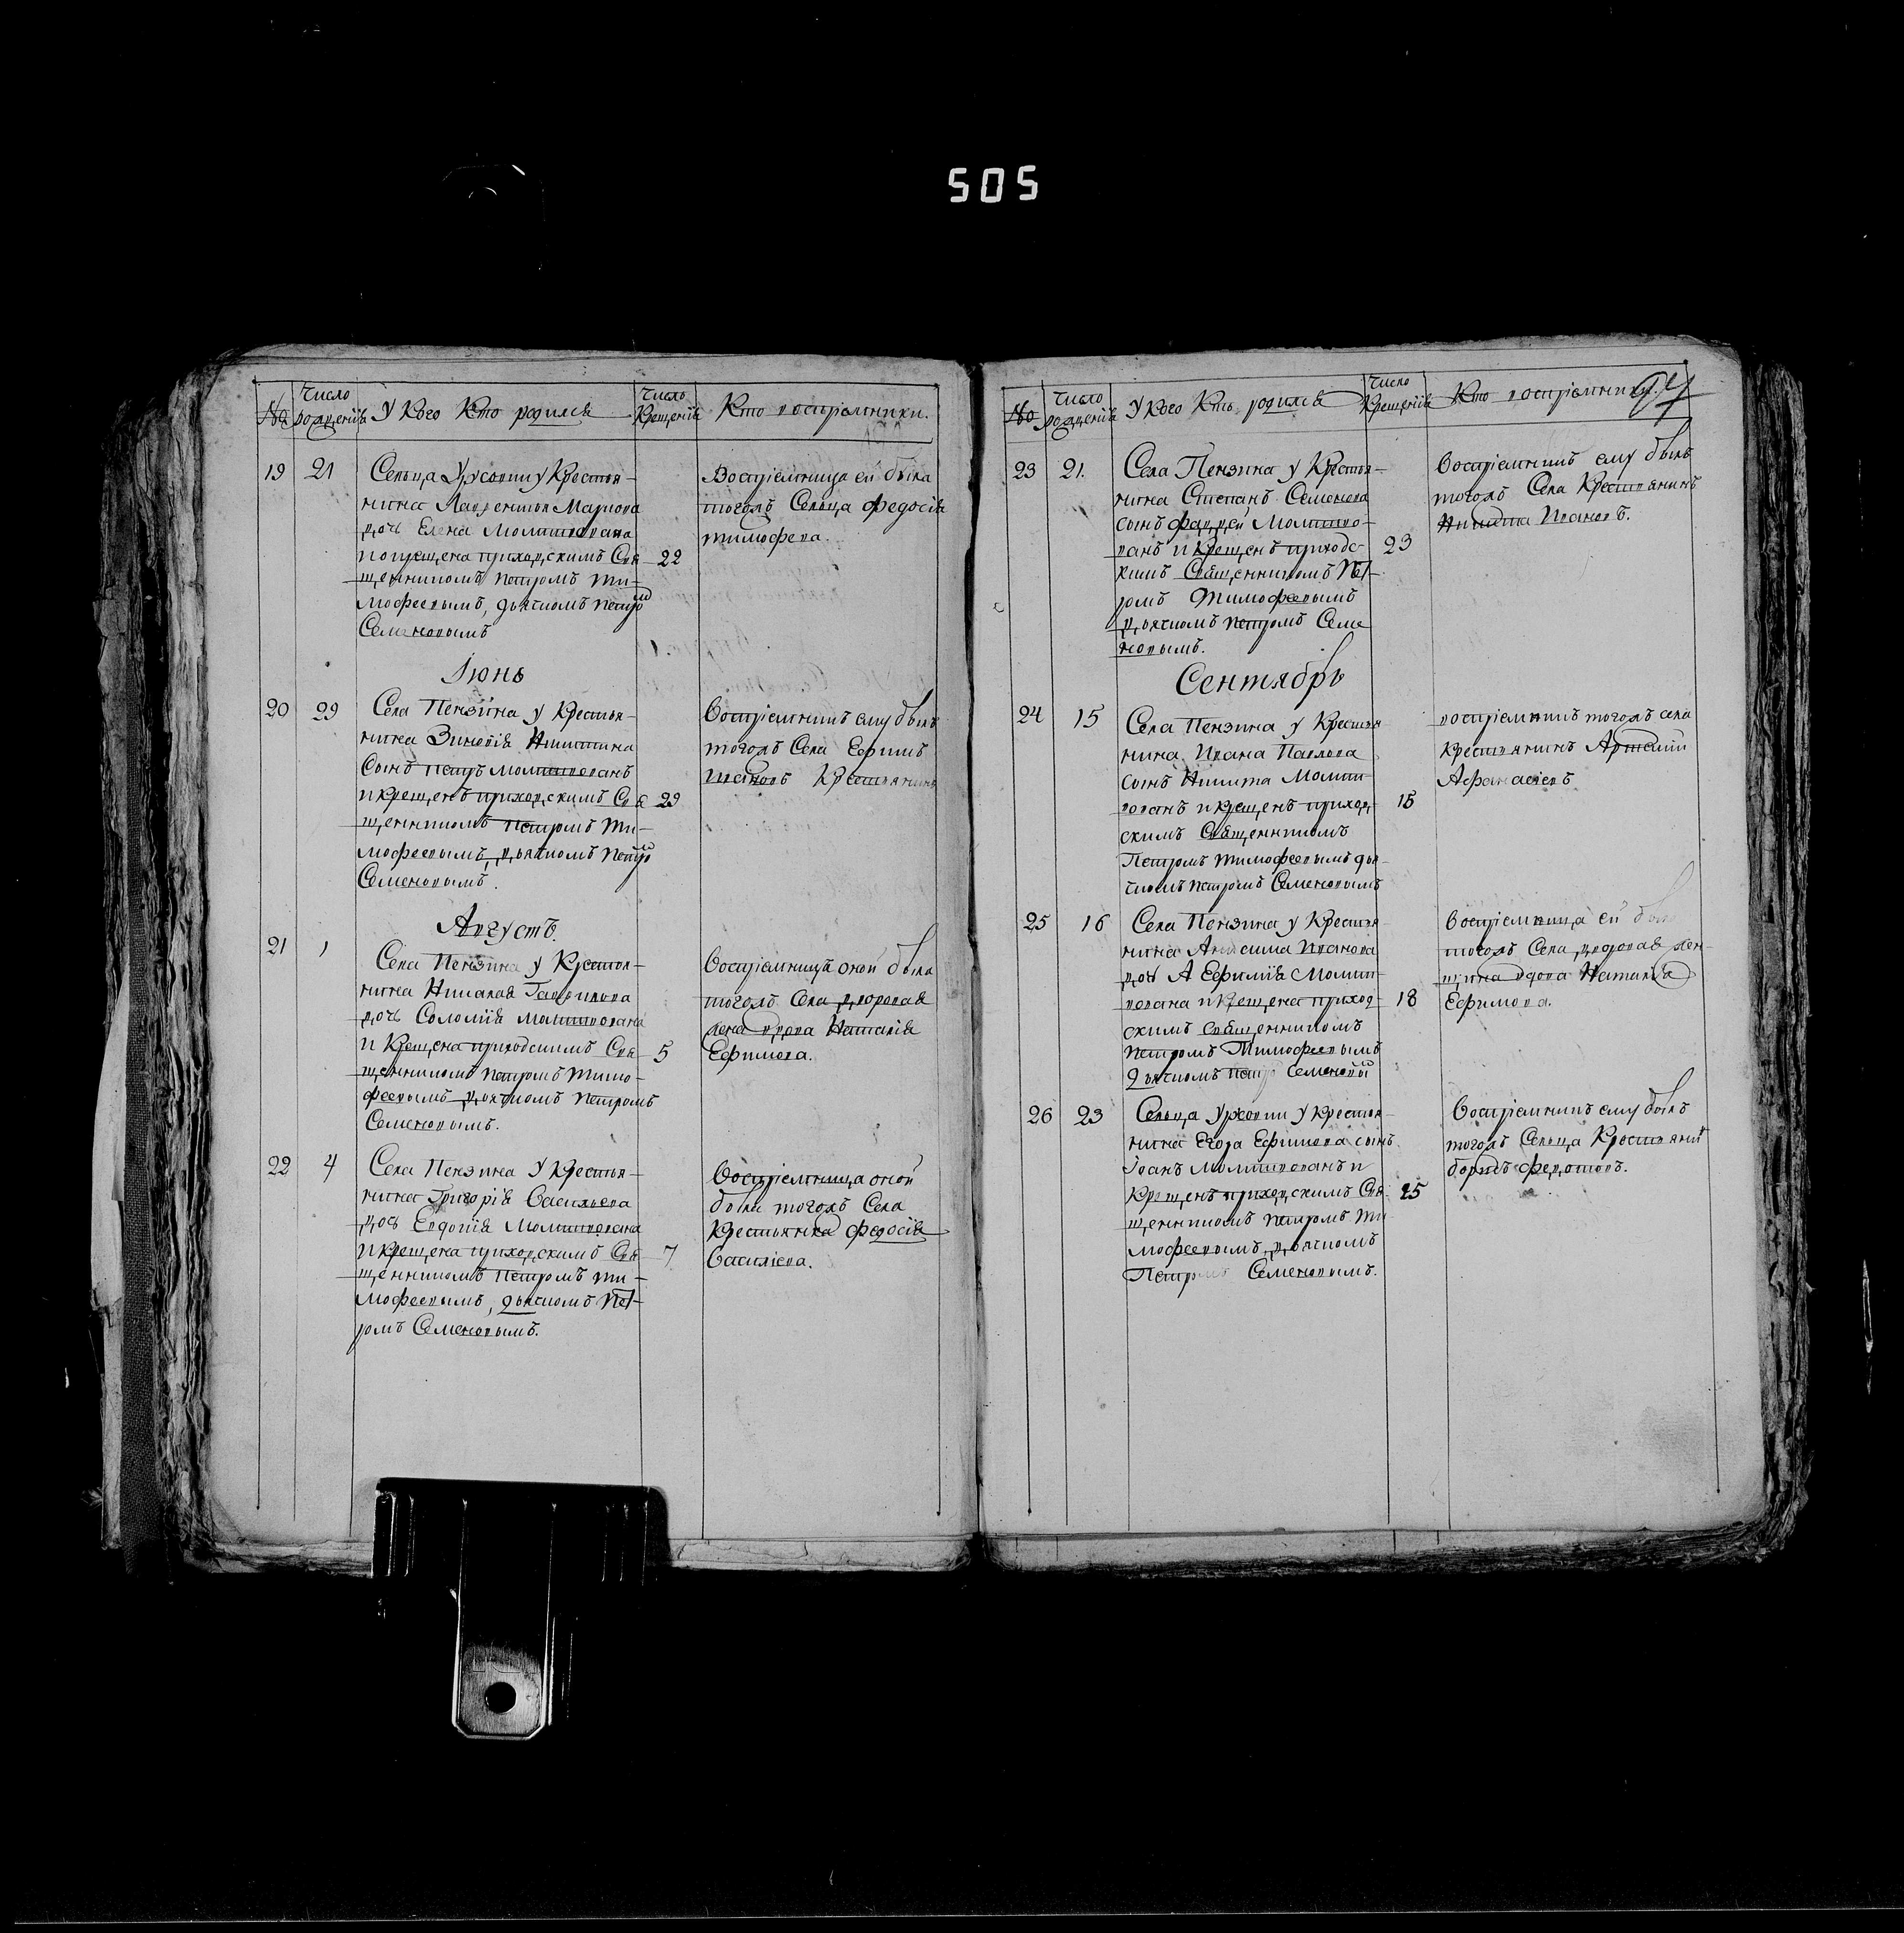 505
№ Число рожденія У Кого Кто родился Число Крещенія Кто воспріемники.
19 21 Сельца Урховки у Крестья-
нина Лаврентья Маркова
дочь Елена Молитвована
и крещена приходскимъ Свя- 22
щенникомъ Петромъ Ти-
мофеевымъ, дьячкомъ Петромъ
Семеновымъ
Воспріемница ей была
тогожъ Сельца Федосія
Тимофева.
Іюнь
20 29 Села Пензина у Крестья-
нина Зиновія Никитина
Сынъ Петръ молитвованъ
и крещенъ приходскимъ Свя 29
щенникомъ Петромъ Ти-
мофеевымъ, дьячкомъ Петромъ
Семеновымъ.
Воспріемникъ ему былъ
тогожъ Села Ефимъ
Ивановъ Крестьянинъ
Августъ.
21 1 Села Пензина у Крестья-
нина Николая Гаврилова
дочь Соломія молитвована
и Крещена приходскимъ Свя- 5
щенникомъ Петромъ Тимо-
феевымъ дьячкомъ Петромъ
Семеновымъ.
Воспріемница оной была
тогожъ Села дворовая
жена вдова Наталія
Ефимова.
22 4 Села Пензина У Крестья-
нина Григорія Васильева
дочь Евдокія Молитвована
и крещена приходскимъ Свя- 7
щенникомъ Петромъ Ти-
мофеевымъ, дьячкомъ Пет-
ромъ Семеновымъ.
Воспріемница оной
была тогожъ Села
Крестьянка Федосія
Василіева.
№ Число рожденія У Кого Кто родился Число Крещенія Кто воспріемники.
23 21. Села Пензина у Крестья-
нина Степанъ Семенова
сынъ Фаддей Молитво-
ванъ и Крещенъ приходс- 23
кимъ Священникомъ Пет-
ромъ Тимофеевымъ
дьячкомъ Петромъ Семе
новымъ.
Воспріемникъ ему былъ
тогожъ Села Крестьянинъ
Никита Ивановъ.
Сентябрь
24 15 Села Пензина у Крестья
нина Ивана Павлова
сынъ Никита Молит-
вованъ и крещенъ приход- 15
скимъ Священникомъ
Петромъ Тимофеевымъ дья-
чкомъ Петромъ Семеновымъ
воспріемникъ тогожъ села
крестьянинъ Артемій
Афанасіевъ
25 16 Села Пензина у Крестья-
нина Анисима Иванова
дочь А Ефимія Молит-
вована и крещена приход- 18
скимъ Священникомъ
Петромъ Тимофеевымъ
дьячкомъ Петро Семеновы
Воспріемница ей была
тогожъ Села дворовая жен-
щина вдова Наталія
Ефимова.
26 23 Сельца Урховки у крестья-
нина Егора Ефимова сынъ
Іоанъ Молитвованъ и
Крещенъ приходскимъ Свя- 25
щенникомъ Петромъ Ти
мофеевымъ, дьячкомъ
Петромъ Семеновымъ.
Воспріемникъ ему былъ
тогожъ Сельца Крестьянинъ
борисъ Федотовъ.